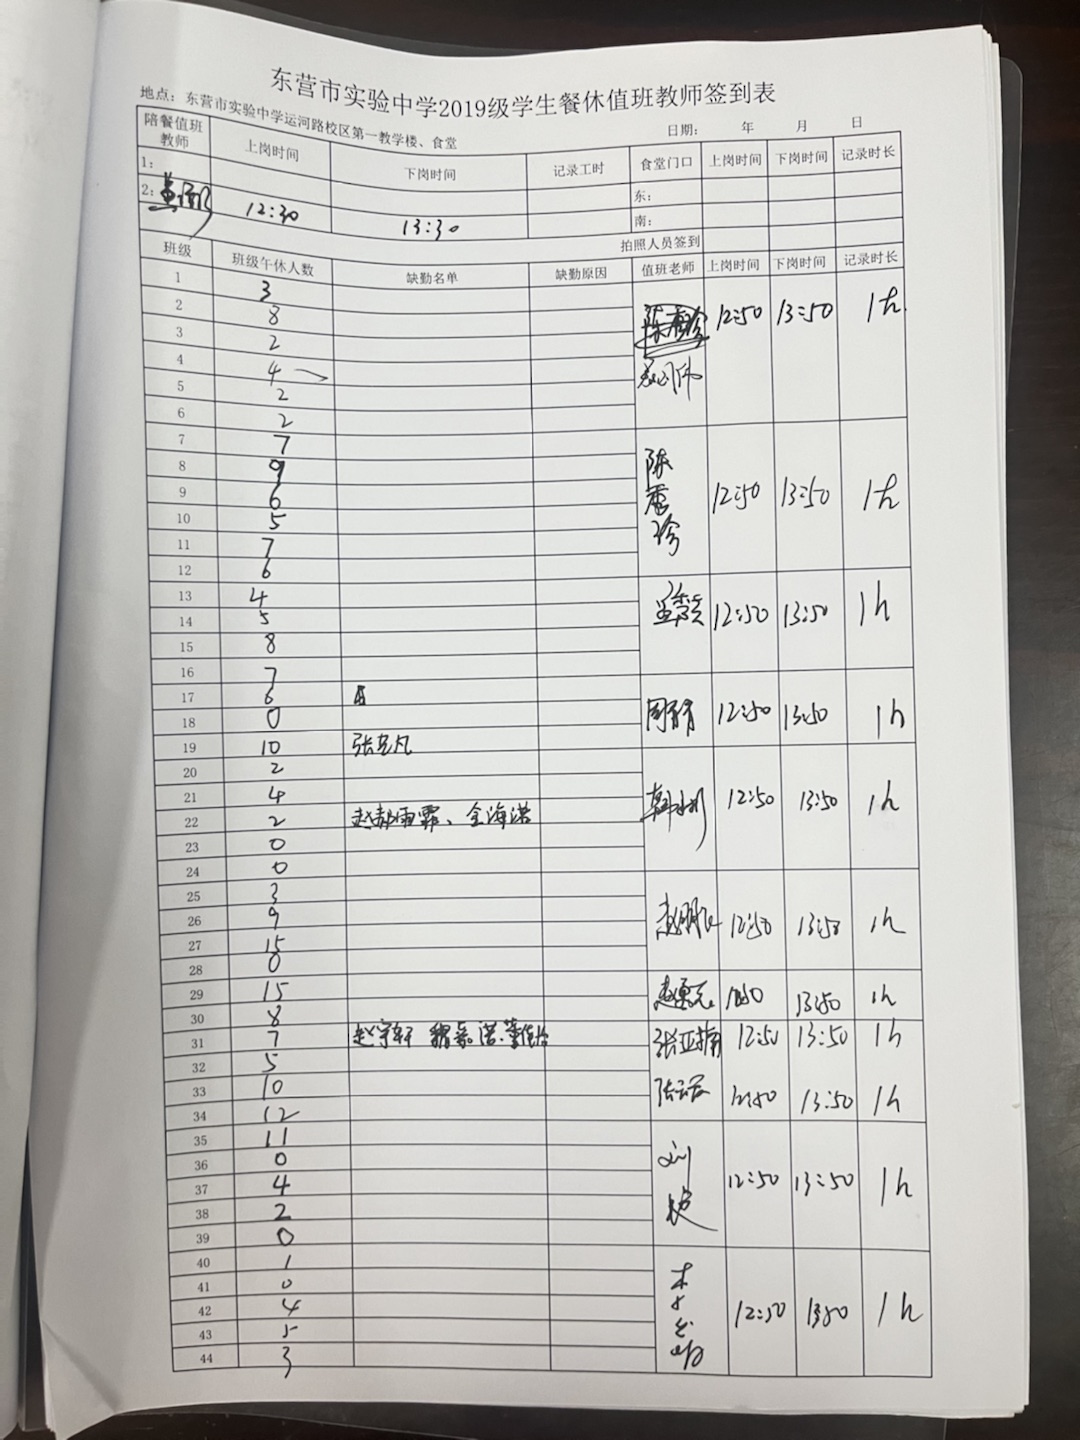 东营市实验中学2019级学生餐休值班教师签到表
地点：东营市实验中学运河路校区第一教学楼、食堂
日期： 年 月 日
陪餐值班教师 上岗时间 下岗时间 记录工时 食堂门口 上岗时间 下岗时间 记录时长
1： 东：
2： 12:30 13:30 南：
拍照人员签到
班级 班级午休人数 缺勤名单 缺勤原因 值班老师 上岗时间 下岗时间 记录时长
1 3
2 8 12:50 13:50 1h
3 2
4 4
5 2
6 2
7 7
8 9
9 6 陈秀珍 12:50 13:50 1h
10 5
11 7
12 6
13 4
14 5 12:50 13:50 1h
15 8
16 7
17 6
18 0 周青 12:50 13:50 1h
19 10 张克凡
20 2
21 4 12:50 13:50 1h
22 2 赵郝雨霏、全海洋
23 0
24 0
25 3
26 9 12:50 13:50 1h
27 15
28 0
29 15 13:50 1h
30 8
31 7 赵宇轩 张亚楠 12:50 13:50 1h
32 5
33 10 12:50 13:50 1h
34 12
35 11
36 0
37 4 12:50 13:50 1h
38 2
39 0
40 1
41 0
42 4 12:50 13:50 1h
43 5
44 3